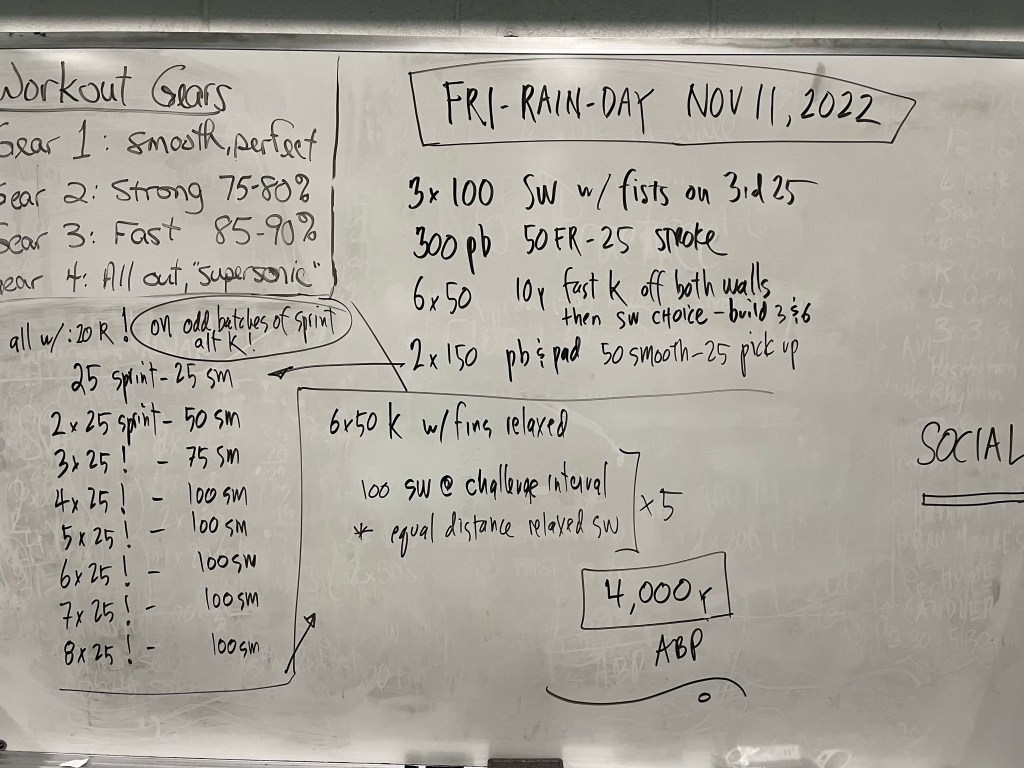 Workout Gears
Gear 1: smooth, perfect
Gear 2: Strong 75-80%
Gear 3: Fast 85-90%
Gear 4: All out, "supersonic"
FRI-RAIN-DAY NOV 11, 2022
3x100 SW w/ fists on 3rd 25
300 pb 50 FR-25 stroke
6x50 10y fast k off both walls
then sw choice - build 3 & 6
2x150 pb & pad 50 smooth-25 pick up
all w/ :20 R! on odd batches of sprint
alt K!
25 sprint - 25 sm
2x25 sprint - 50 sm
3x25! - 75 sm
4x25! - 100 sm
5x25! - 100 sm
6x25! - 100 sm
7x25! - 100 sm
8x25! - 100 sm
6x50 K w/ fins relaxed
100 sw @ challenge interval
* equal distance relaxed sw
x5
4,000 Y
ABP
SOCIAL